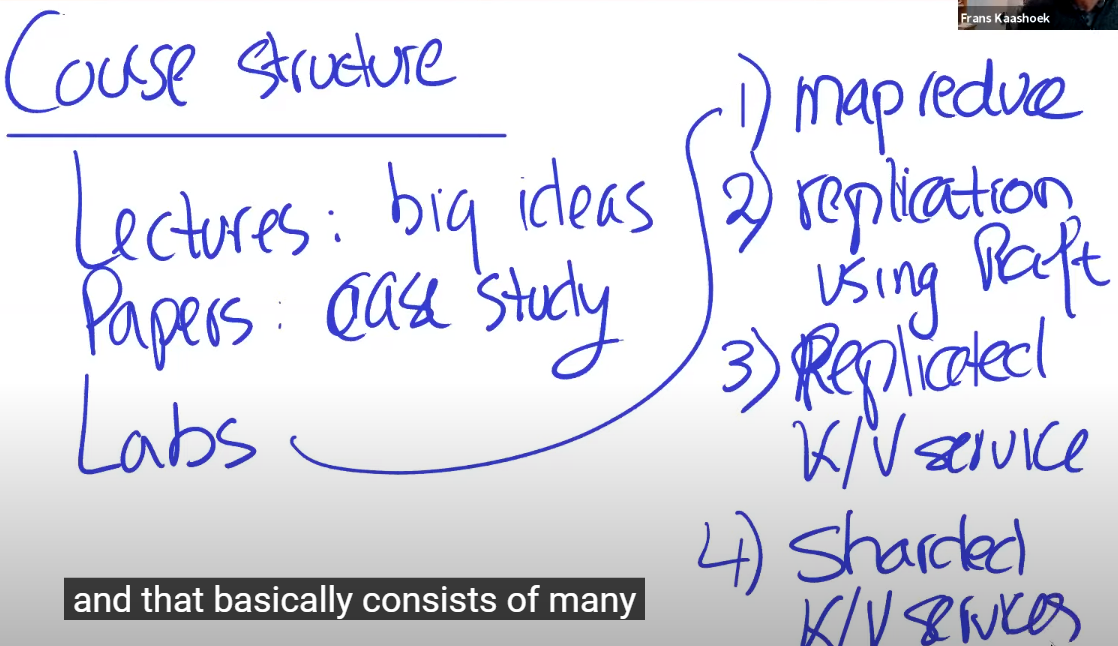 Frans Kaashoek
Couse structure
Lectures: big ideas
Papers: case study
Labs
1) map reduce
2) replication
using Raft
3) Replicated
K/V service
4) Sharded
K/V services
and that basically consists of many